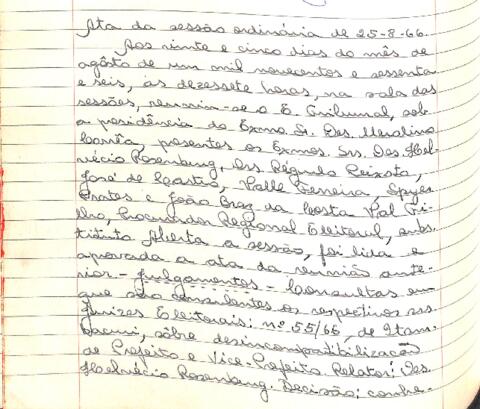 Ata da sessão ordinária de 25-8-66.
Aos vinte e cinco dias do mês de
agôsto de um mil novecentos e sessenta
e seis, às dezessete horas, na sala das
sessões, reuniu-se o E. Tribunal, sob
a presidência do Exmo. Sr. Des. Merolino
Corrêa, presentes os Exmos. Srs. Des. Hel-
vécio Rosenburg, Drs. Régulo Peixoto,
José de Castro, Valle Ferreira, Spyer
Prates e João Braz da Costa Val Fi-
lho, Procurador Regional Eleitoral, subs-
tituto. Aberta a sessão, foi lida e
aprovada a ata da reunião ante-
rior. - Julgamentos - Consultas em
que são consulentes os respectivos srs.
Juizes Eleitorais: nº 55/66, de Itam-
bacuri, sôbre desincompatibilização
de Prefeito e Vice-Prefeito. Relator: Des.
Helvécio Rosenburg. Decisão: conhe-